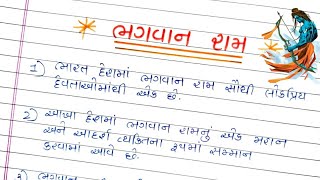 ભગવાન રામ
1) ભારત દેશમાં ભગવાન રામ સૌથી લોકપ્રિય
દેવતાઓમાંથી એક છે.
2) આખા દેશમાં ભગવાન રામનું એક મહાન
અને આદર્શ વ્યક્તિના રૂપમાં સન્માન
કરવામાં આવે છે.
૩) ભગવાન